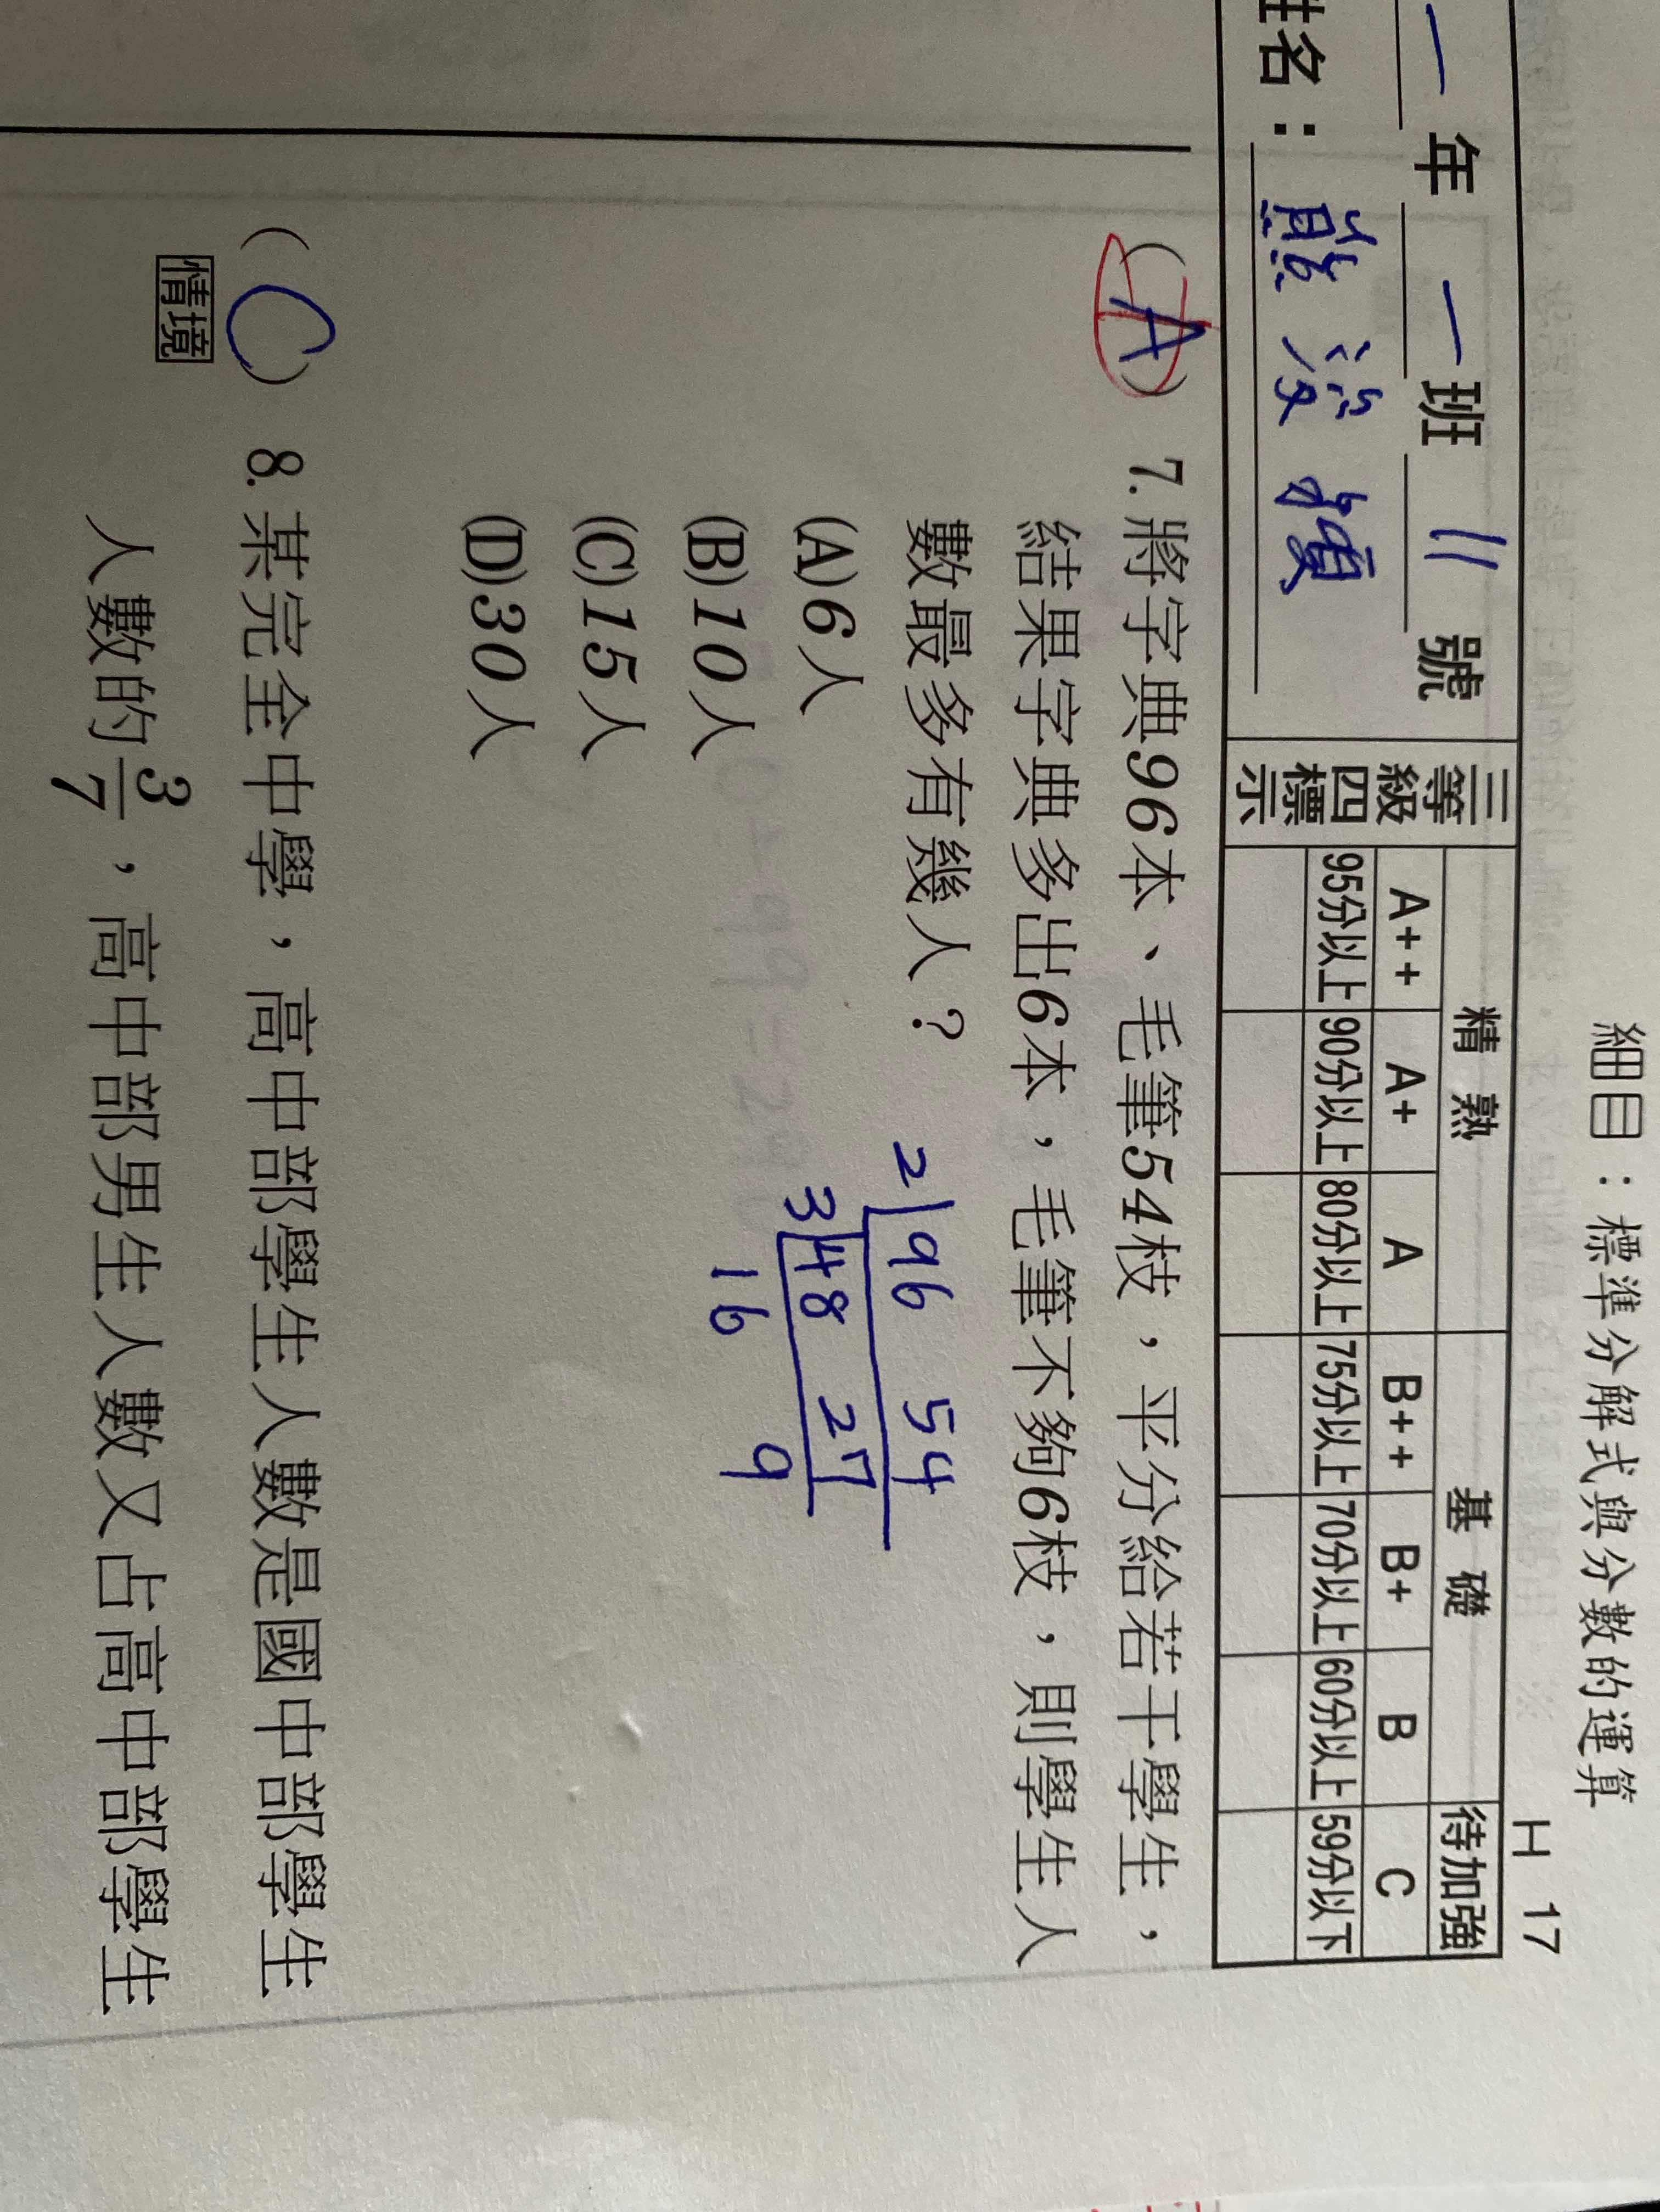 細目：標準分解式與分數的運算
H 17
一年一班11號
姓名：熊
三等級四標示
精熟 基礎 待加強
A++ A+ A B++ B+ B C
95分以上 90分以上 80分以上 75分以上 70分以上 60分以上 59分以下
(A) 7. 將字典96本、毛筆54枝，平分給若干學生，
結果字典多出6本，毛筆不夠6枝，則學生人
數最多有幾人？
(A)6人
(B)10人
(C)15人
(D)30人
2 96 54
3 48 27
16 9
(C) 8. 某完全中學，高中部學生人數是國中部學生
情境
人數的3/7，高中部男生人數又占高中部學生